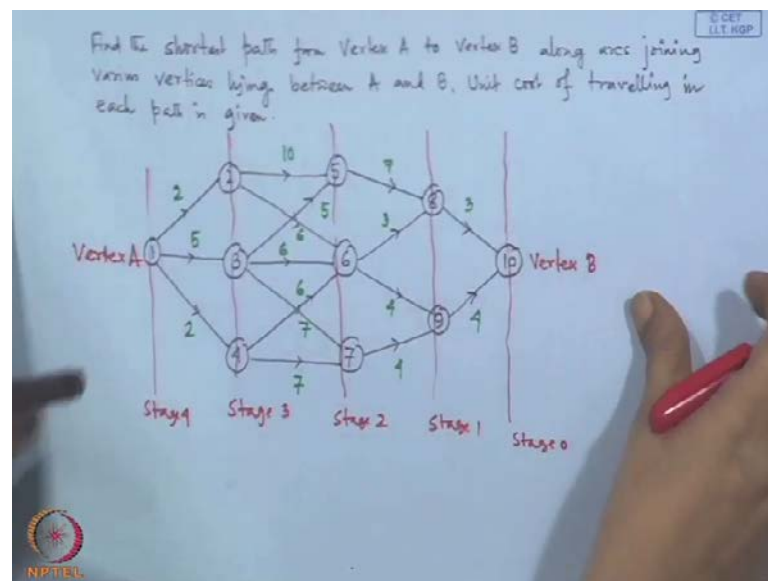 © CET
I.I.T. KGP
Find the shortest path from Vertex A to Vertex B along arcs joining
vertices lying between A and B. Unit cost of travelling in
each path is given.
10
2 5 7
2 5 8 3
Vertex A 1 5 3 6 6 6 3 10 Vertex B
6 4 9 4
2 4 7 7 4
7
Stage 4 Stage 3 Stage 2 Stage 1 Stage 0
NPTEL